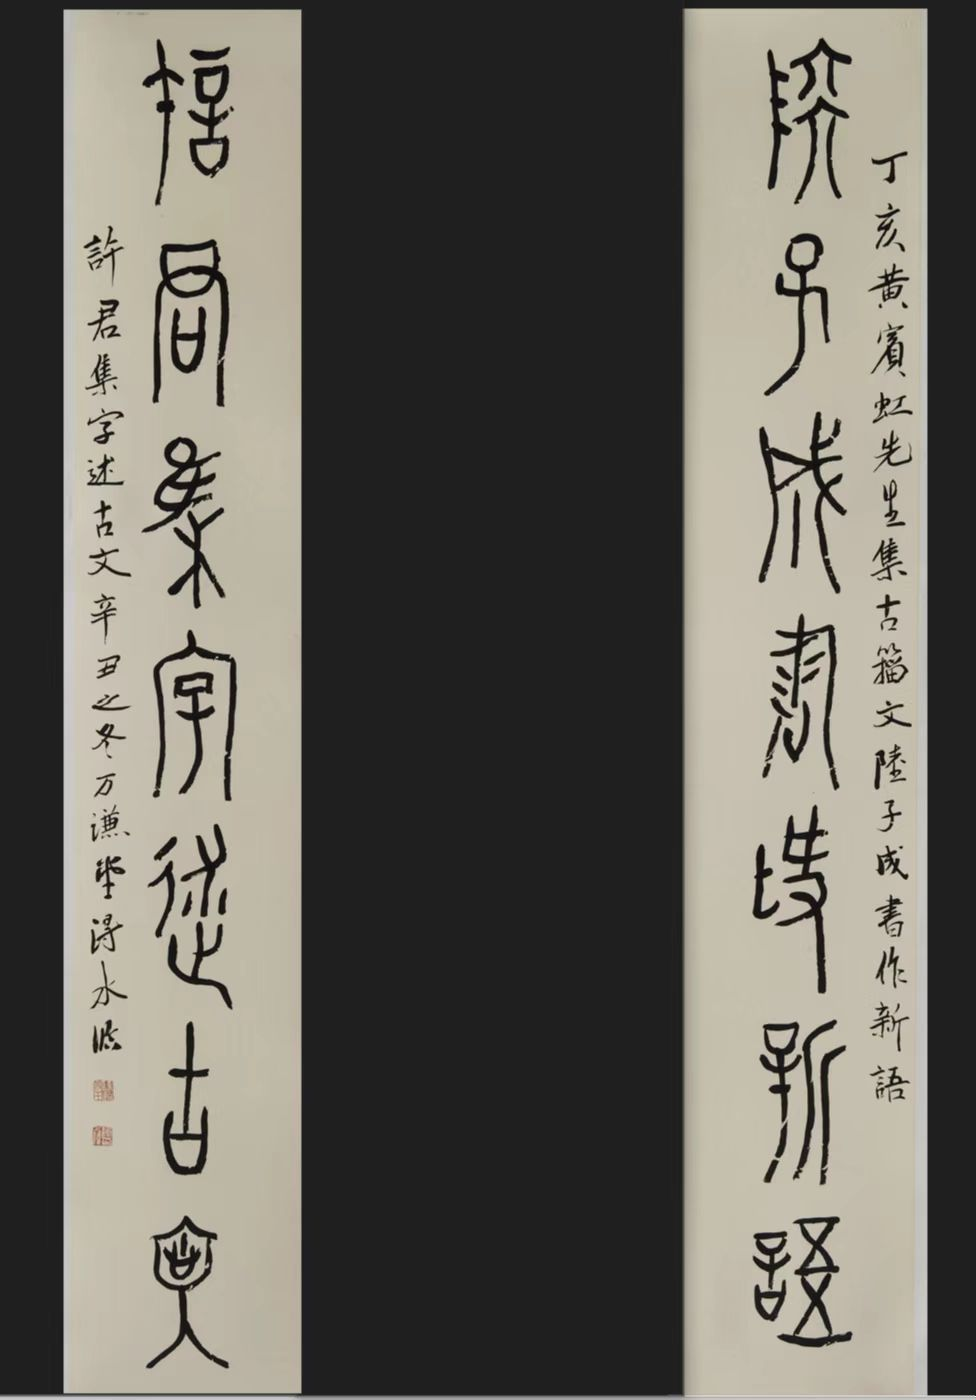 丁亥黄賓虹先生集古籀文陸子成書作新語
陸子成書作新語
許君集字述古文
許君集字述古文辛丑之冬万謙堂得水臨